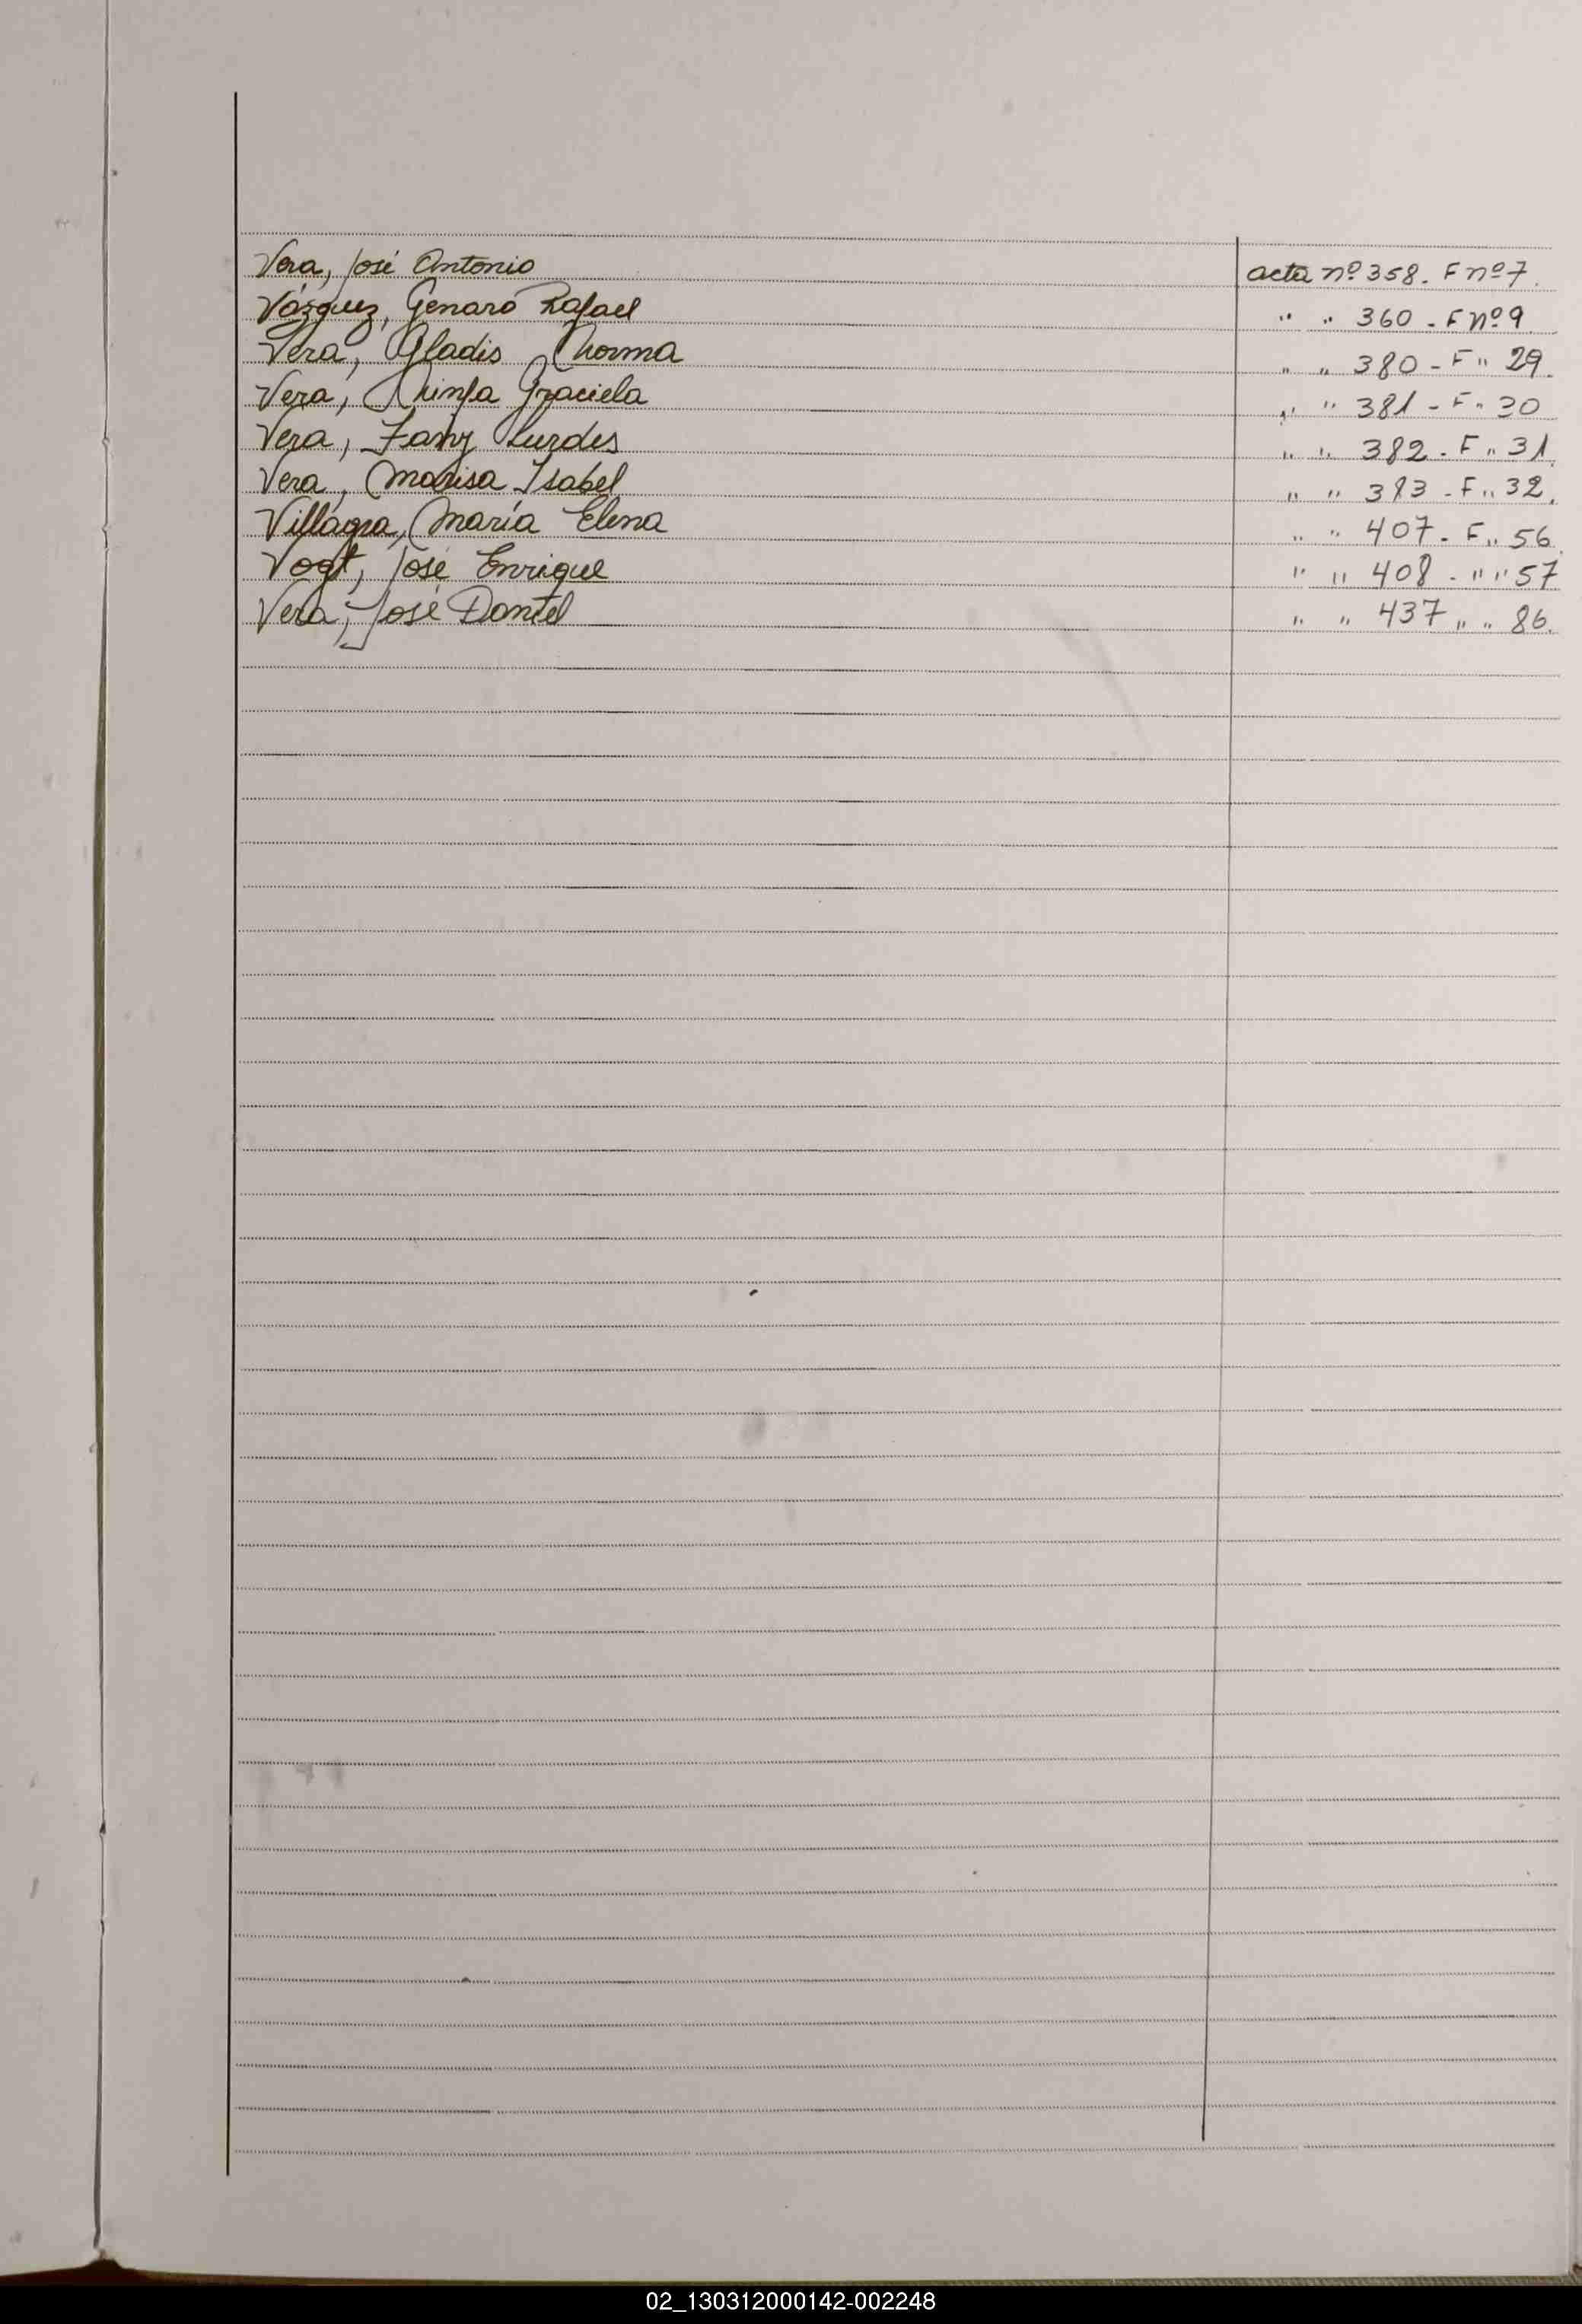 Vera, José Antonio acta nº 358. F nº 7.
Vázquez, Genaro Rafael " " 360 - F nº 9
Vera, Gladis Norma " " 380 - F " 29.
Vera, Ninfa Graciela " " 381 - F " 30
Vera, Fany Lurdes " " 382 - F " 31.
Vera, Marisa Isabel " " 383 - F " 32.
Villagra, María Elena " " 407 - F " 56
Vogt, José Enrique " " 408 - " " 57
Vera, José Daniel " " 437 " " 86.
02_130312000142-002248